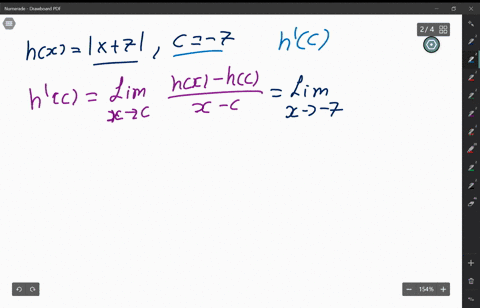 Numerade - Drawboard PDF
2 / 4
h(x) = |x+7| , c = -7 h'(c)
h'(c) = Lim x→c h(x) - h(c) / x - c = Lim x→-7
154%